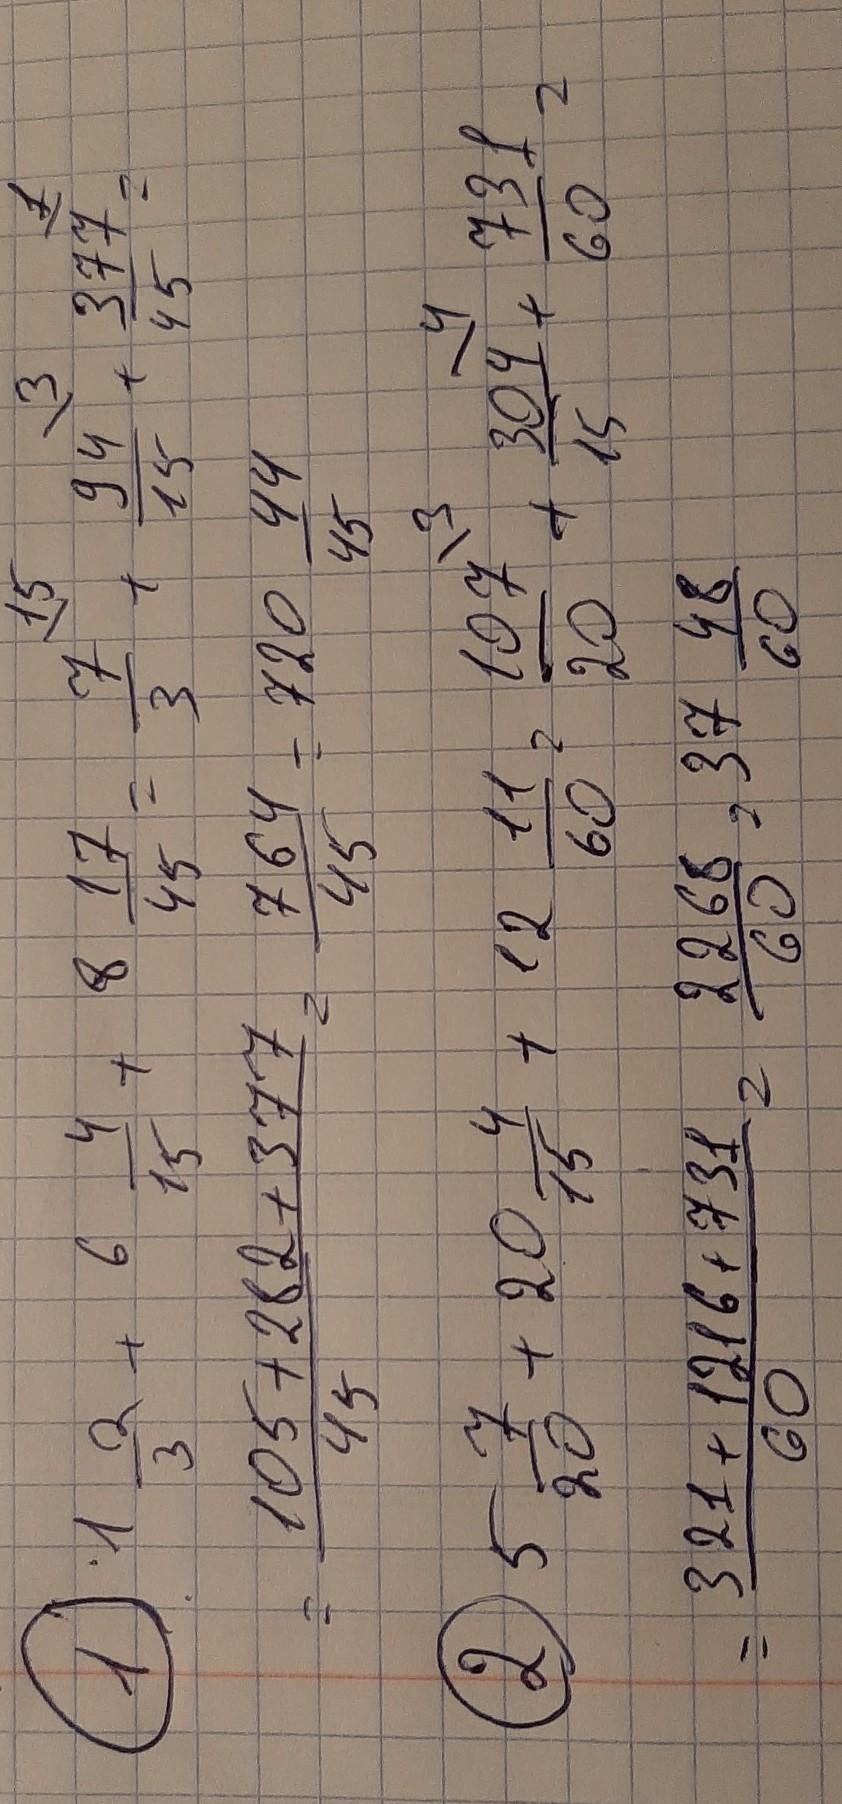 1) 1 2/3 + 6 4/15 + 8 17/45 = 7/3 \15 + 94/15 \3 + 377/45 \1 =
= (105+282+377)/45 = 764/45 = 720 44/45
2) 5 7/20 + 20 4/15 + 12 11/60 = 107/20 \3 + 304/15 \4 + 731/60 =
= (321+1216+731)/60 = 2268/60 = 37 48/60